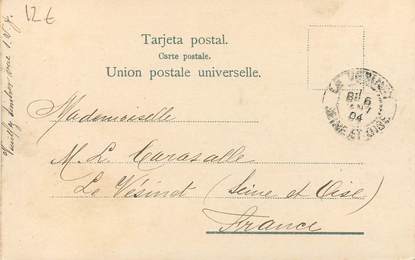 12€
Tarjeta postal.
Carte postale.
Union postale universelle.
LE VÉSINET
6
04
SEINE-ET-OISE
Mademoiselle
M. L. Carasalle
Le Vésinet (Seine et Oise)
France